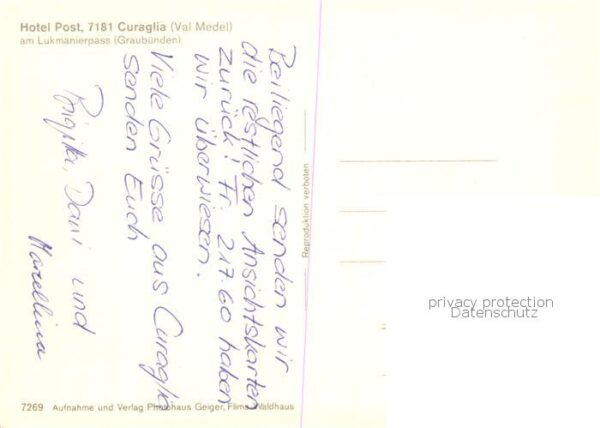 Hotel Post, 7181 Curaglia (Val Medel)
am Lukmanierpass (Graubünden)
Beiliegend senden wir
die restlichen Ansichtskarten
zurück! Fr. 217.60 haben
wir überwiesen.
Viele Grüsse aus Curaglia
senden Euch
Brigitta, Dani und
Marcellina
Reproduktion verboten
privacy protection
Datenschutz
7269 Aufnahme und Verlag Photohaus Geiger, Flims-Waldhaus